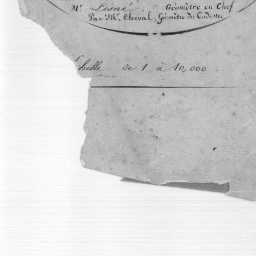 Mr Géomètre en Chef
Par Mr. Cheval, Géomètre du Cadastre
chelle de 1 à 10,000